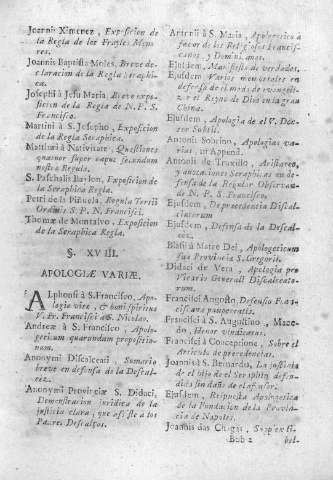 Joannis Ximenez, Exposicion de
la Regla de los Frayles Menores.
Joannis Baptista Moles, Breve declaracion
de la Regla Seraphica.
Josephi à Jesu Maria, Breve exposicion
de la Regla de N. P. S.
Francisco.
Martini à S. Josepho, Exposicion
de la Regla Seraphica.
Matthæi à Nativitate, Questiones
quatuor super caput secundum
nostræ Regulæ.
S. Paschalis Baylon, Exposicion de
la Seraphica Regla.
Petri de la Piñuela, Regula Tertii
Ordinis S. P. N. Francisci.
Thomæ de Montalvo, Exposicion
de la Seraphica Regla.
§. XVIII.
APOLOGIÆ VARIÆ.
Alphonsi à S. Francisco, Apologia
vitæ, & boni spiritus
V. Fr. Francisci à S. Nicolao.
Andreæ à S. Francisco, Apologeticum
quarundam propositionum.
Anonymi Discalceati, Sumario
breve en defensa de la Descalcez.
Anonymi Provinciæ S. Didaci,
Demonstracion juridica de la
justicia clara, que assiste à los
Padres Descalços.
à S. Maria, Apologetico
a favor de los Religiosos Franciscanos,
y Dominicanos.
Ejusdem, Manifiesto de verdades.
Ejusdem Varios memoriales en
defensa de el modo de evangelizar
el Reyno de Dios en la gran
China.
Ejusdem, Apologia de el V. Doctor
Subtil.
Antonii Sobrino, Apologias varias.
in Append.
Antonii de Truxillo,
y anotaciones Seraphicas en defensa
de la Regular Observancia
de N. P. S. Francisco.
Ejusdem, De præcedentia Discalceatorum.
Ejusdem, Defensa de la Descalcez.
Blasii à Matre Dei, Apologeticum
suæ Provinciæ S. Gregorii.
Didaci de Vera, Apologia pro
Vicario Generali Discalceatorum.
Francisci Angusto, Defensio Franciscanæ
paupertatis.
Francisci à S. Augustino, Macedo,
Honor vindicatus.
Francisci à Conceptione, Sobre el
Articulo de precedencias.
Joannis à S. Bernardo, La justicia
de el
sin daño de el
Ejusdem, Respuesta Apologetica
de la Fundacion de la Provincia
de Napoles.
Joannis das Chagas,
Bbb 2